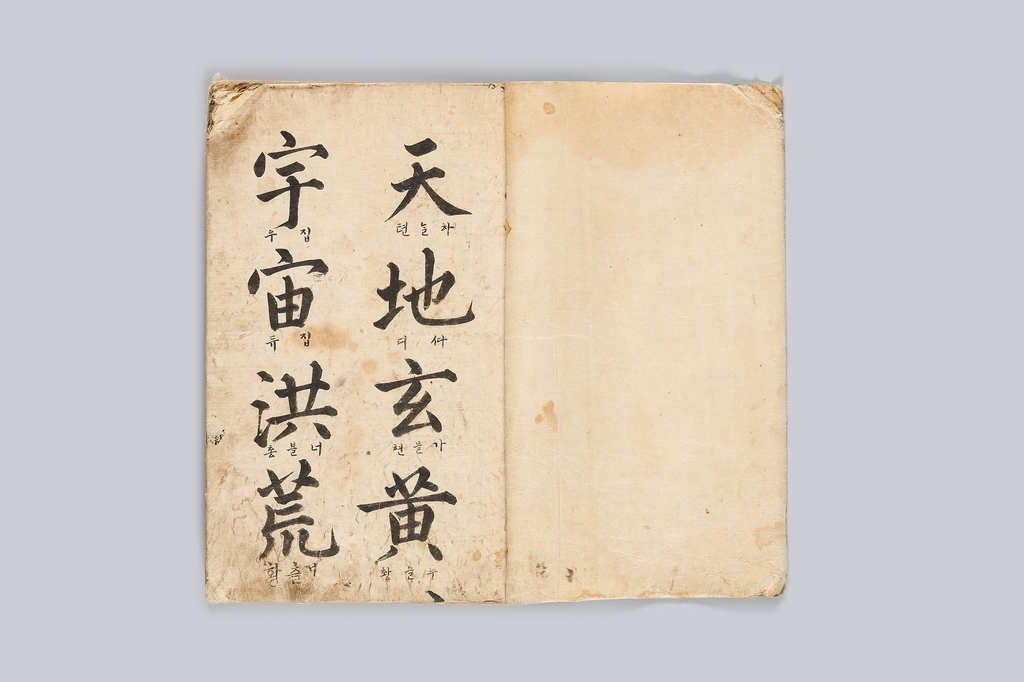 天
하늘텬
地
ᄯᅡ디
玄
가믈현
黃
누를황
宇
집우
宙
집듀
洪
너블홍
荒
거츨황